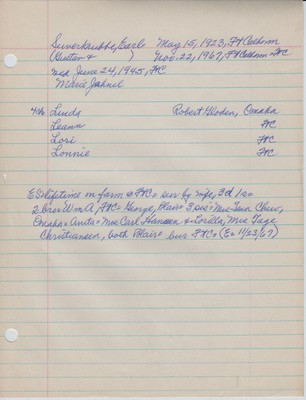 Suverkrubbe, Earl May 15, 1923, Ft Calhoun
(Gustav & ) Nov. 22, 1967, Ft Calhoun FtC
wed June 24, 1945, FtC
Marie Jahnel
4ch Linda Robert Gloden, Omaha
Leann FtC
Lori FtC
Lonnie FtC
ES lifetime on farm @ FtC = sur by wife, 3d 1s =
2 bros Wm A, FtC = George, Blair = 3 sis = Mrs Irma Chew,
Omaha = Anita = Mrs Carl Hansen & Lorilla, Mrs Tage
Christiansen, both Blair = bur FtC = (E = 11/23/67)